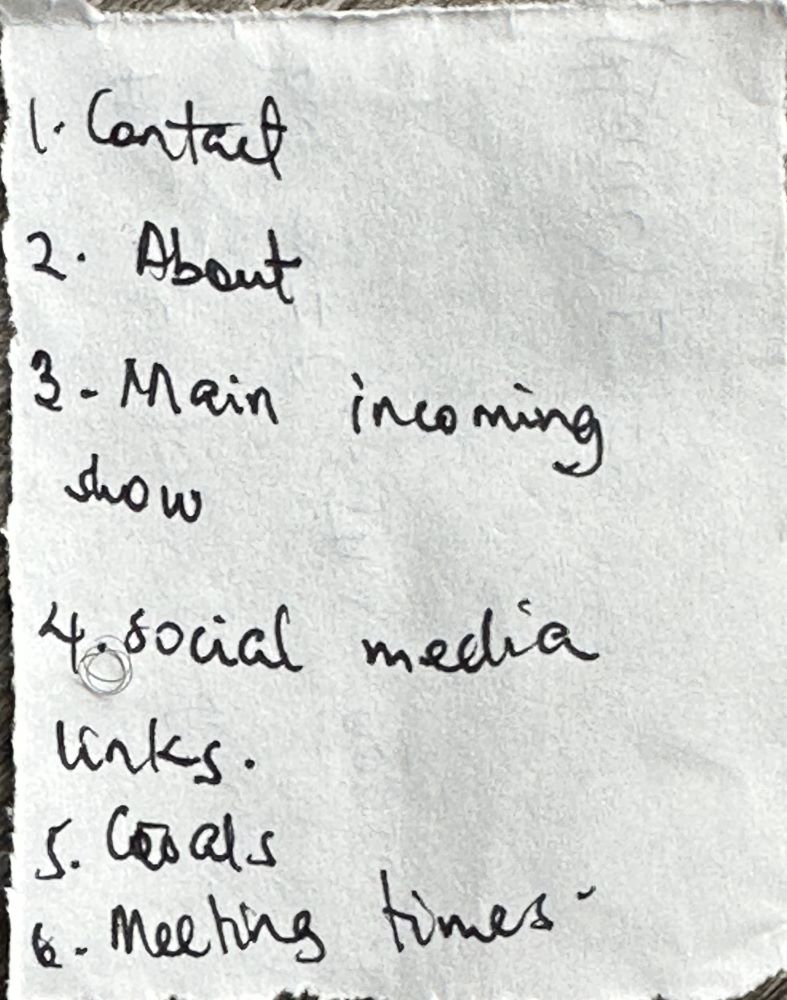 1. Contact
2. About
3. Main incoming
show
4. social media
links.
5. Goals
6. Meeting times.